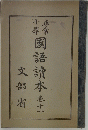 尋常
小學
國語讀本 卷十一
文部省